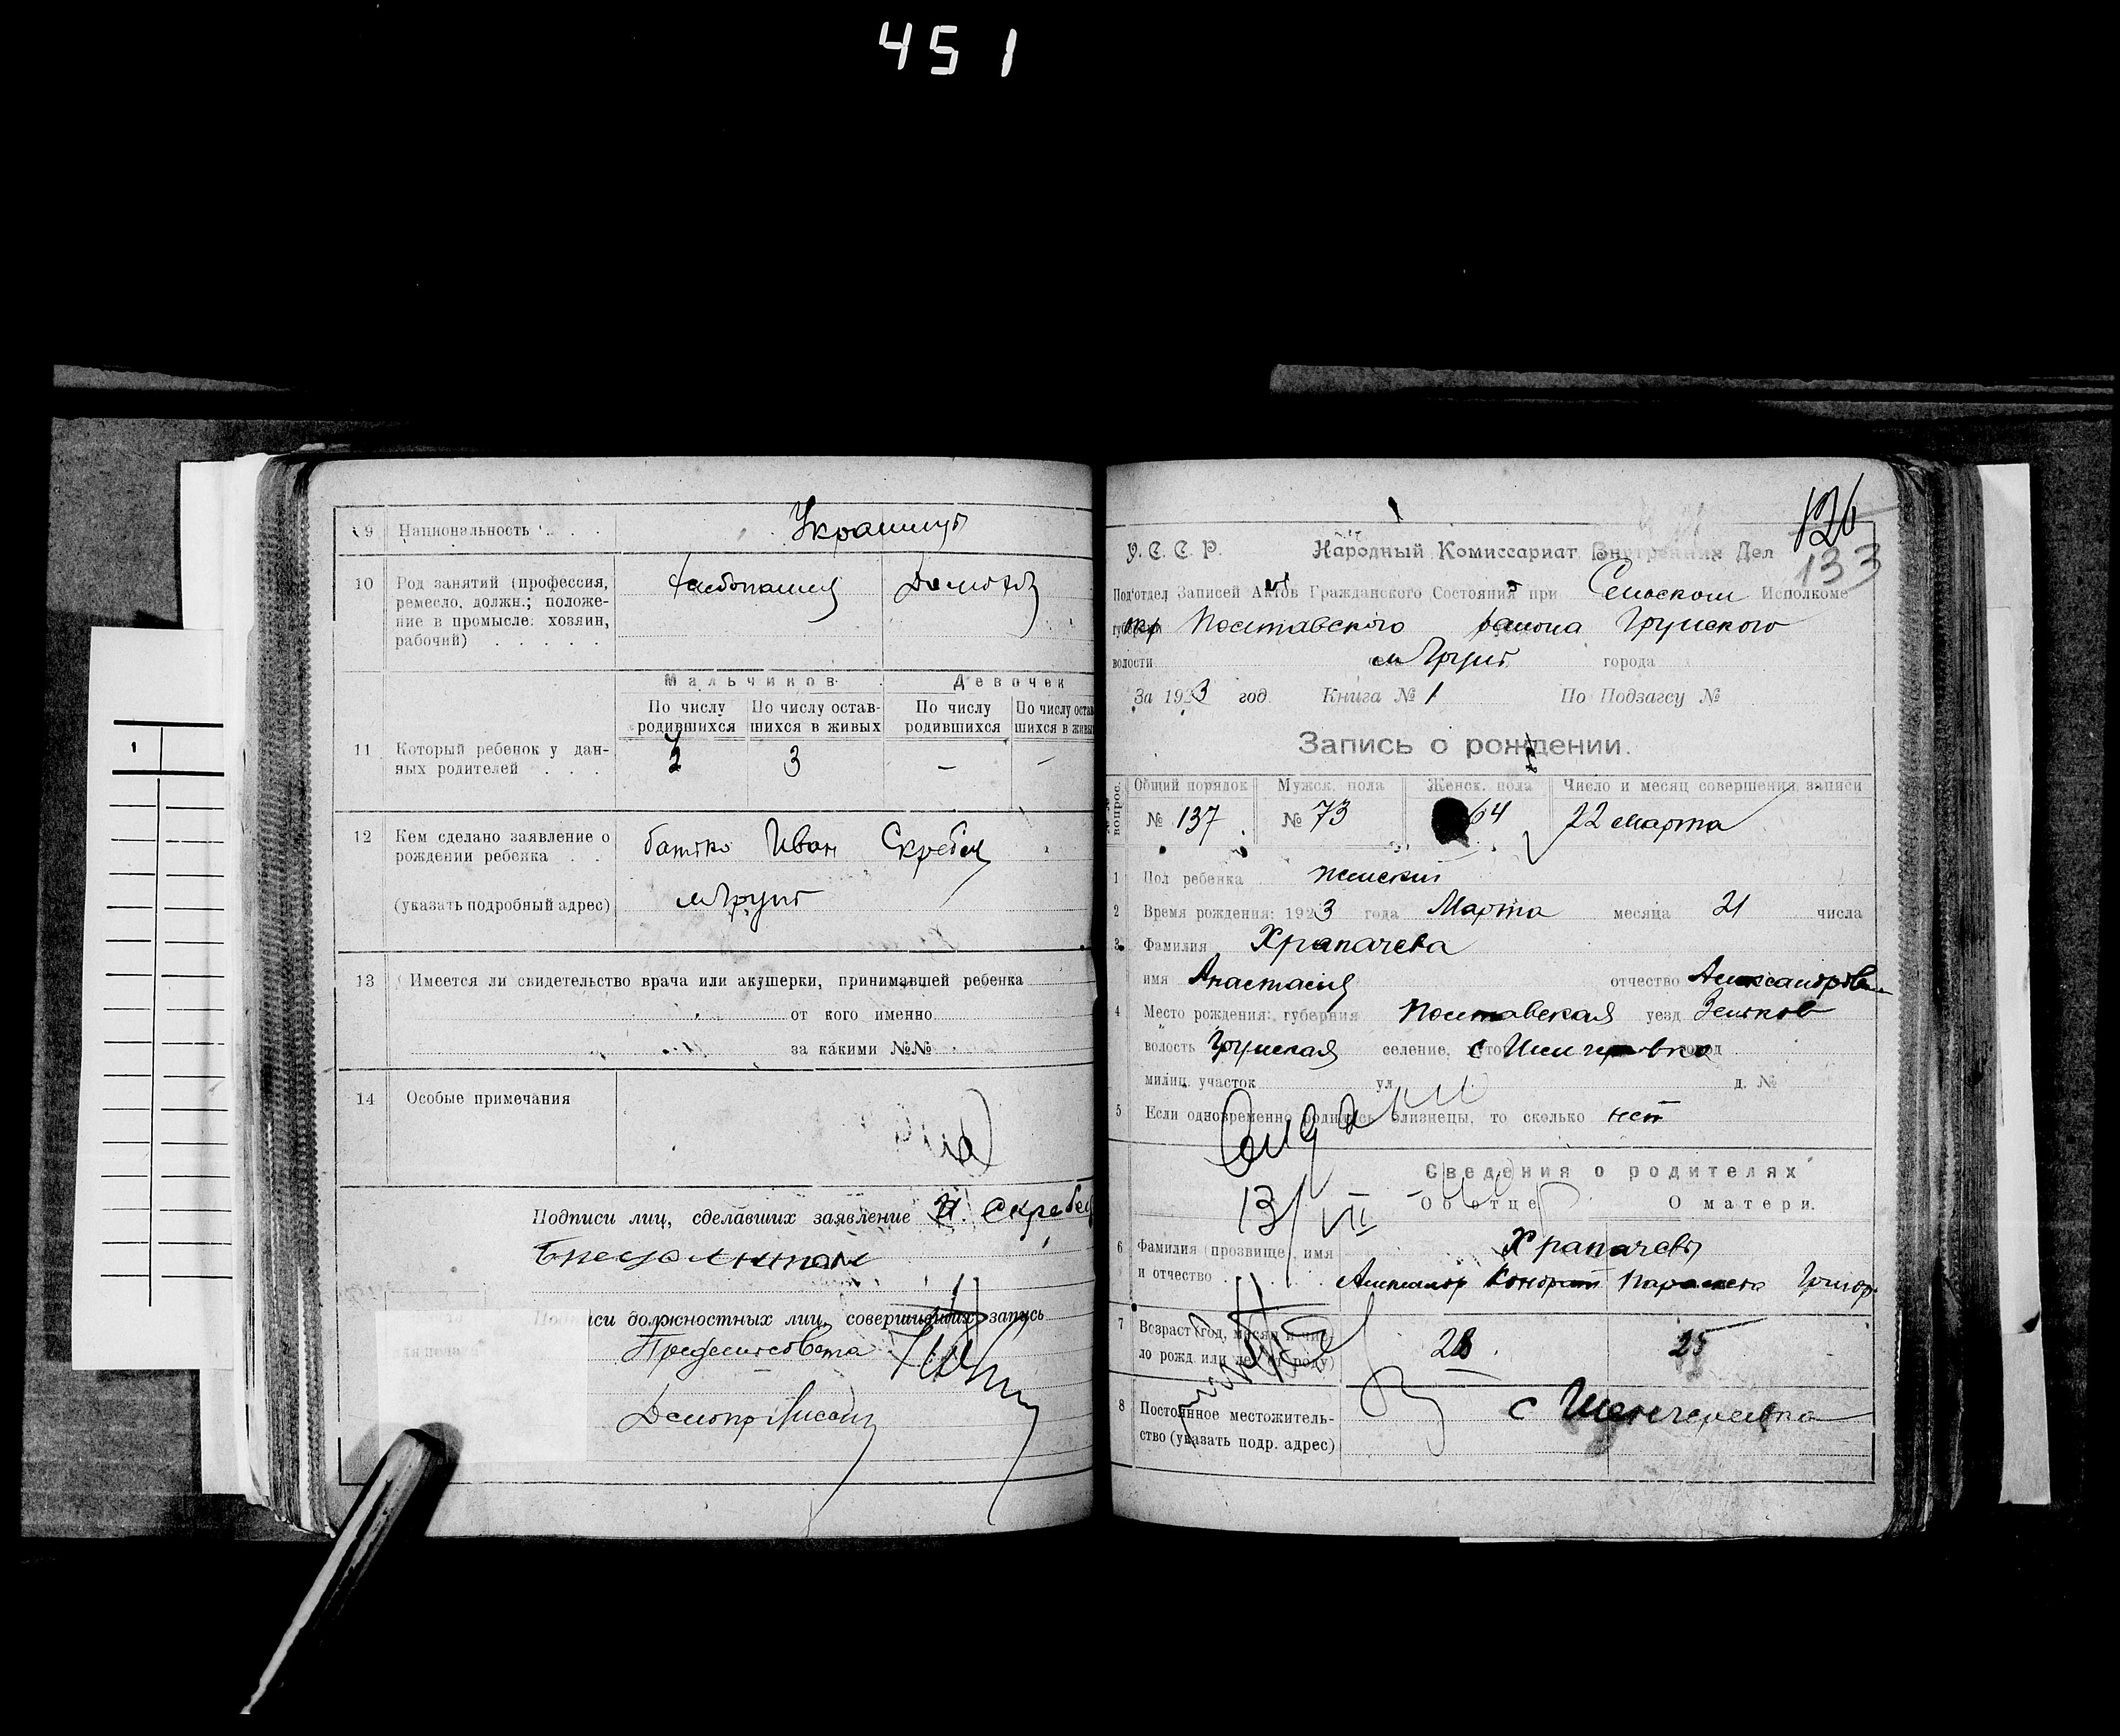 451
9 Национальность
10 Род занятий (профессия,
ремесло, должн.; положе-
ние в промысле: хозяин,
рабочий)
Мальчиков Девочек
По числу родившихся По числу остав-шихся в живых По числу родившихся По числу остав шихся в живы
11 Который ребенок у дан-
ных родителей 3 3 — —
12 Кем сделано заявление о
рождении ребенка батько Иван Скребец
(указать подробный адрес) м Грунь
13 Имеется ли свидетельство врача или акушерки, принимавшей ребенка
от кого именно
за какими №№
14 Особые примечания
Подписи лиц, сделавших заявление И. Скребец
иси должностных лиц, совершивших запись
126
133
У. С. С. Р. Народный Комиссариат Внутренних Дел
Под'отдел Записей Актов Гражданского Состояния при Сельском Исполкоме
губернии окр Полтавского района Грунского
волости м Грунь города
За 1923 год Книга № 1 По Подзагсу №
Запись о рождении.
№№ вопрос. Общий порядок Мужск. пола Женск. пола Число и месяц совершения записи
№ 137 № 73 64 22 марта
1 Пол ребенка женский
2 Время рождения: 1923 года Марта месяца 21 числа
3 Фамилия Храпачева
имя Анастасия отчество Александров
4 Место рождения: губерния Полтавская уезд Зеньков
волость Грунская селение, с
милиц. участок ул д. №
5 Если одновременно родились близнецы, то сколько нет
13/VII
Сведения о родителях
Об отце О матери.
6 Фамилия (прозвище), имя Храпачевы
и отчество Александр Кондрат Параскева Григор
7 Возраст (год, месяц и чис-
ло рожд. или лет от роду) 28 25
8 Постоянное местожитель-
ство (указать подр. адрес) с